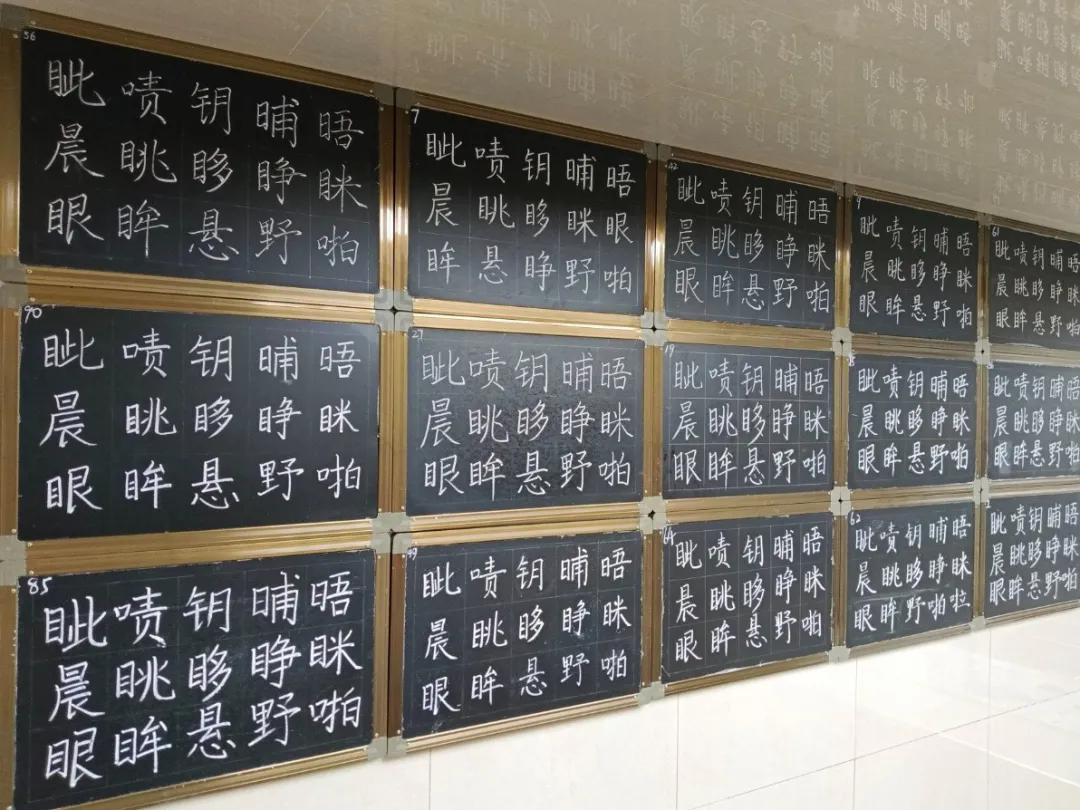 56
眦 啧 钥 晡 晤
晨 眺 眵 睁 眯
眼 眸 悬 野 啪
7
眦 啧 钥 晡 晤
晨 眺 眵 眯 眼
眸 悬 睁 野 啪
眦 啧 钥 晡 晤
晨 眺 眵 睁 眯
眼 眸 悬 野 啪
眦 啧 钥 晡 晤
晨 眺 眵 睁 眯
眼 眸 悬 野 啪
61
眦 啧 钥 晡 晤
晨 眺 眵 睁 眯
眼 眸 悬 野 啪
90
眦 啧 钥 晡 晤
晨 眺 眵 睁 眯
眼 眸 悬 野 啪
27
眦 啧 钥 晡 晤
晨 眺 眵 睁 眯
眼 眸 悬 野 啪
19
眦 啧 钥 晡 晤
晨 眺 眵 睁 眯
眼 眸 悬 野 啪
眦 啧 钥 晡 晤
晨 眺 眵 睁 眯
眼 眸 悬 野 啪
眦 啧 钥 晡 晤
晨 眺 眵 睁 眯
眼 眸 悬 野 啪
85
眦 啧 钥 晡 晤
晨 眺 眵 睁 眯
眼 眸 悬 野 啪
眦 啧 钥 晡 晤
晨 眺 眵 睁 眯
眼 眸 悬 野 啪
64
眦 啧 钥 晡 晤
晨 眺 眵 睁 眯
眼 眸 悬 野 啪
62
眦 啧 钥 晡 晤
晨 眺 眵 睁 眯
眼 眸 野 啪 啦
眦 啧 钥 晡 晤
晨 眺 眵 睁 眯
眼 眸 悬 野 啪